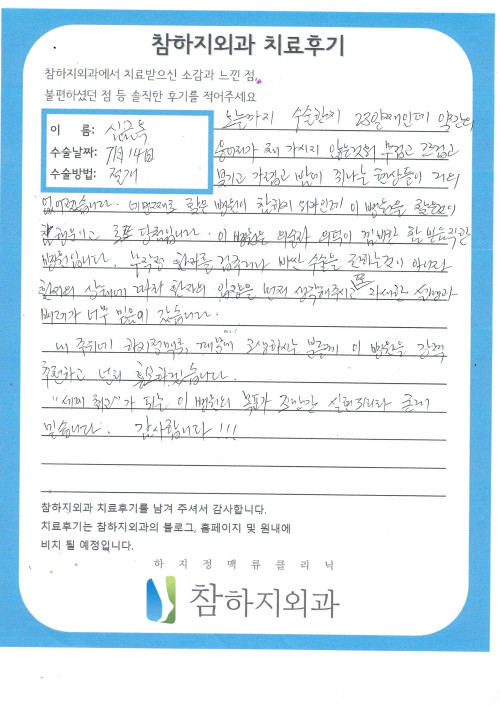 참하지외과 치료후기
참하지외과에서 치료받으신 소감과 느낀 점,
불편하셨던 점 등 솔직한 후기를 적어주세요
이 름:
수술날짜: 7월 14일
수술방법: 절개
오늘까지 수술한지 23일째인데 약간의
가시지 않은것외 무겁고 저리고
붓기고 가렵고 밤에 쥐나는 현상들이 거의
없어졌습니다. 네번째로 찾은 병원이 참하지 외과인데 이 병원을
당첨입니다. 이 병원은 의술과 의덕이 겸비한 참 믿음직한
병원입니다. 무작정 환자를 수술을 것이 아니라
환자의 상태에 따라 환자의 입장을 먼저 생각해주시고 또 자세한 설명과
배려가 너무 믿음이 갔습니다.
내 주위에 하지정맥류, 고생하시는 분들께 이 병원을 강력
추천하고 널리 홍보하겠습니다.
"세계 최고"가 되는 이 병원의 목표가 조만간 실현되리라 굳게
믿습니다. 감사합니다!!!
참하지외과 치료후기를 남겨 주셔서 감사합니다.
치료후기는 참하지외과의 블로그, 홈페이지 및 원내에
비치 될 예정입니다.
하지정맥류클리닉
참하지외과